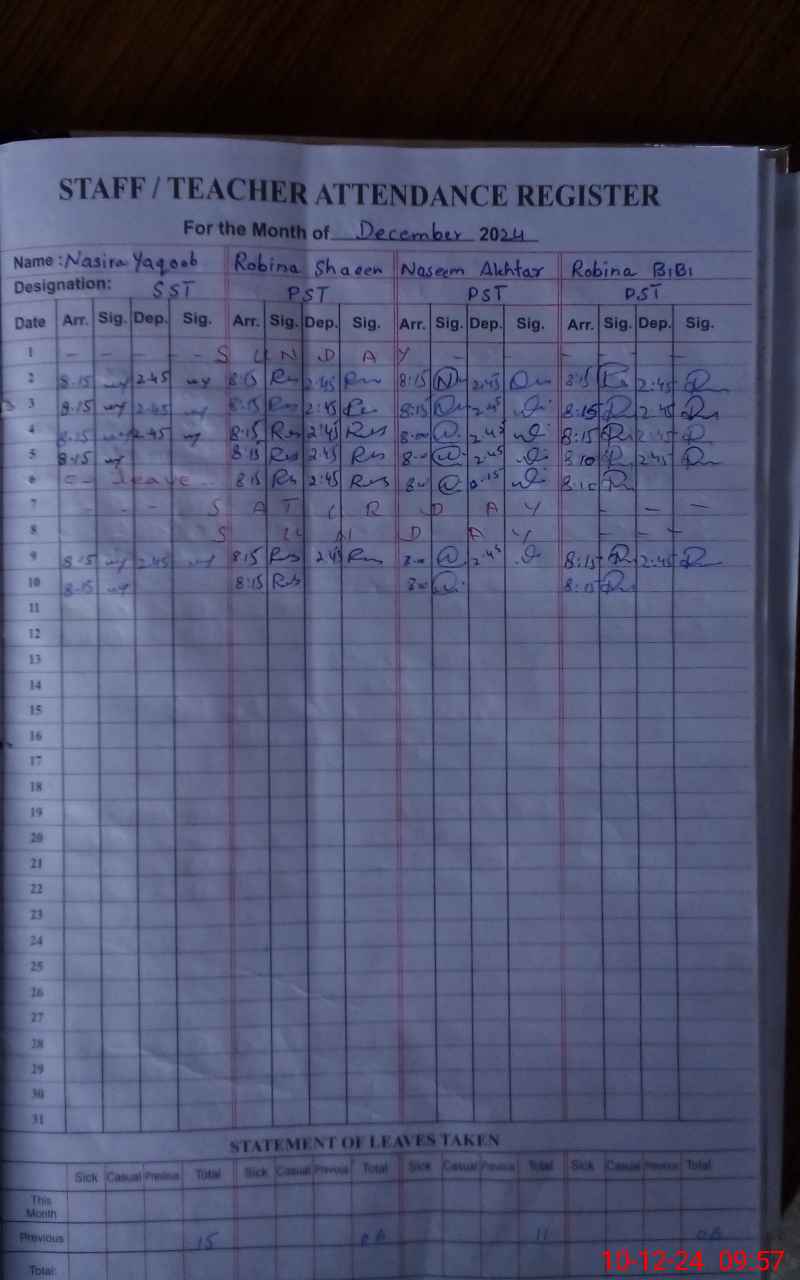 STAFF / TEACHER ATTENDANCE REGISTER
For the Month of December 2024
Name : Nasira Yaqoob Robina Shaeen Naseem Akhtar Robina BiBi
Designation: SST PST PST PST
Date Arr. Sig. Dep. Sig. Arr. Sig. Dep. Sig. Arr. Sig. Dep. Sig. Arr. Sig. Dep. Sig.
1 - - - - S U N D A Y - - - -
2 8.15 2.45 8:15 2:45 8:15 2:45 8:15 2:45
3 8.15 2.45 8:15 2:45 8:15 2:45 8:15 2:45
4 8.15 2.45 8:15 2:45 8:00 2:45 8:15 2:45
5 8.15 8:15 2:45 8:00 2:45 8:10 2:45
6 leave 8:15 2:45 8:10
7 - - - S A T U R D A Y - - -
8 S U N D A Y - - -
9 8.15 2.45 8:15 2:45 8:00 2:45 8:15 2:45
10 8.15 8:15 8:00 8:15
11
12
13
14
15
16
17
18
19
20
21
22
23
24
25
26
27
28
29
30
31
STATEMENT OF LEAVES TAKEN
Sick Casual Previous Total Sick Casual Previous Total Sick Casual Previous Total Sick Casual Previous Total
This
Month
Previous 15 11
Total:
10-12-24 09:57